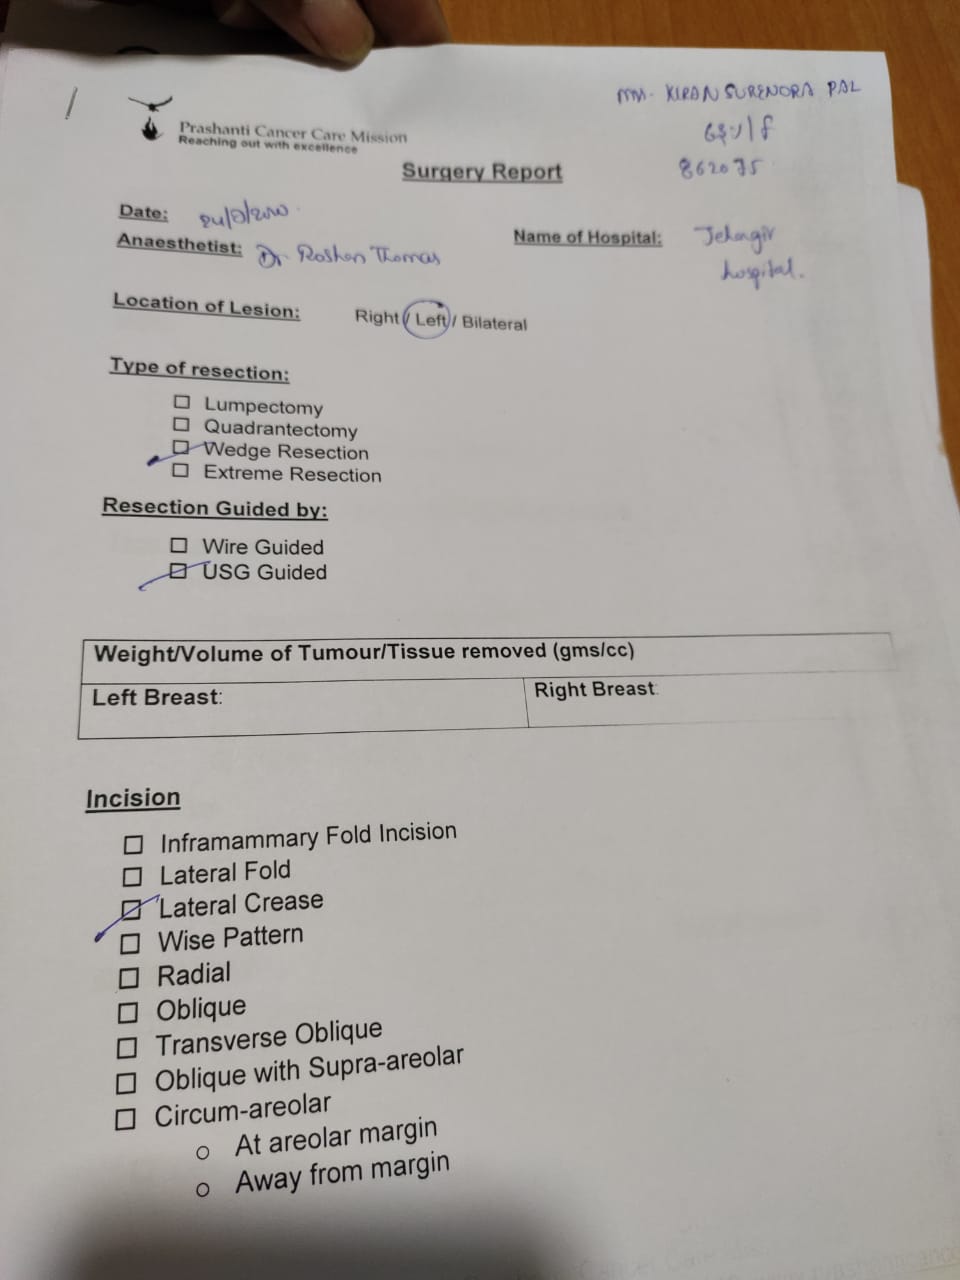 Mrs. KIRAN SURENDRA PAL
Prashanti Cancer Care Mission
Reaching out with excellence
63y/f
862075
Surgery Report
Date:
Anaesthetist: Dr Roshan Thomas
Name of Hospital: Jehangir hospital.
Location of Lesion: Right / Left / Bilateral
Type of resection:
☐ Lumpectomy
☐ Quadrantectomy
☐ Wedge Resection
☐ Extreme Resection
Resection Guided by:
☐ Wire Guided
☐ USG Guided
Weight/Volume of Tumour/Tissue removed (gms/cc)
Left Breast: Right Breast:
Incision
☐ Inframammary Fold Incision
☐ Lateral Fold
☐ Lateral Crease
☐ Wise Pattern
☐ Radial
☐ Oblique
☐ Transverse Oblique
☐ Oblique with Supra-areolar
☐ Circum-areolar
○ At areolar margin
○ Away from margin